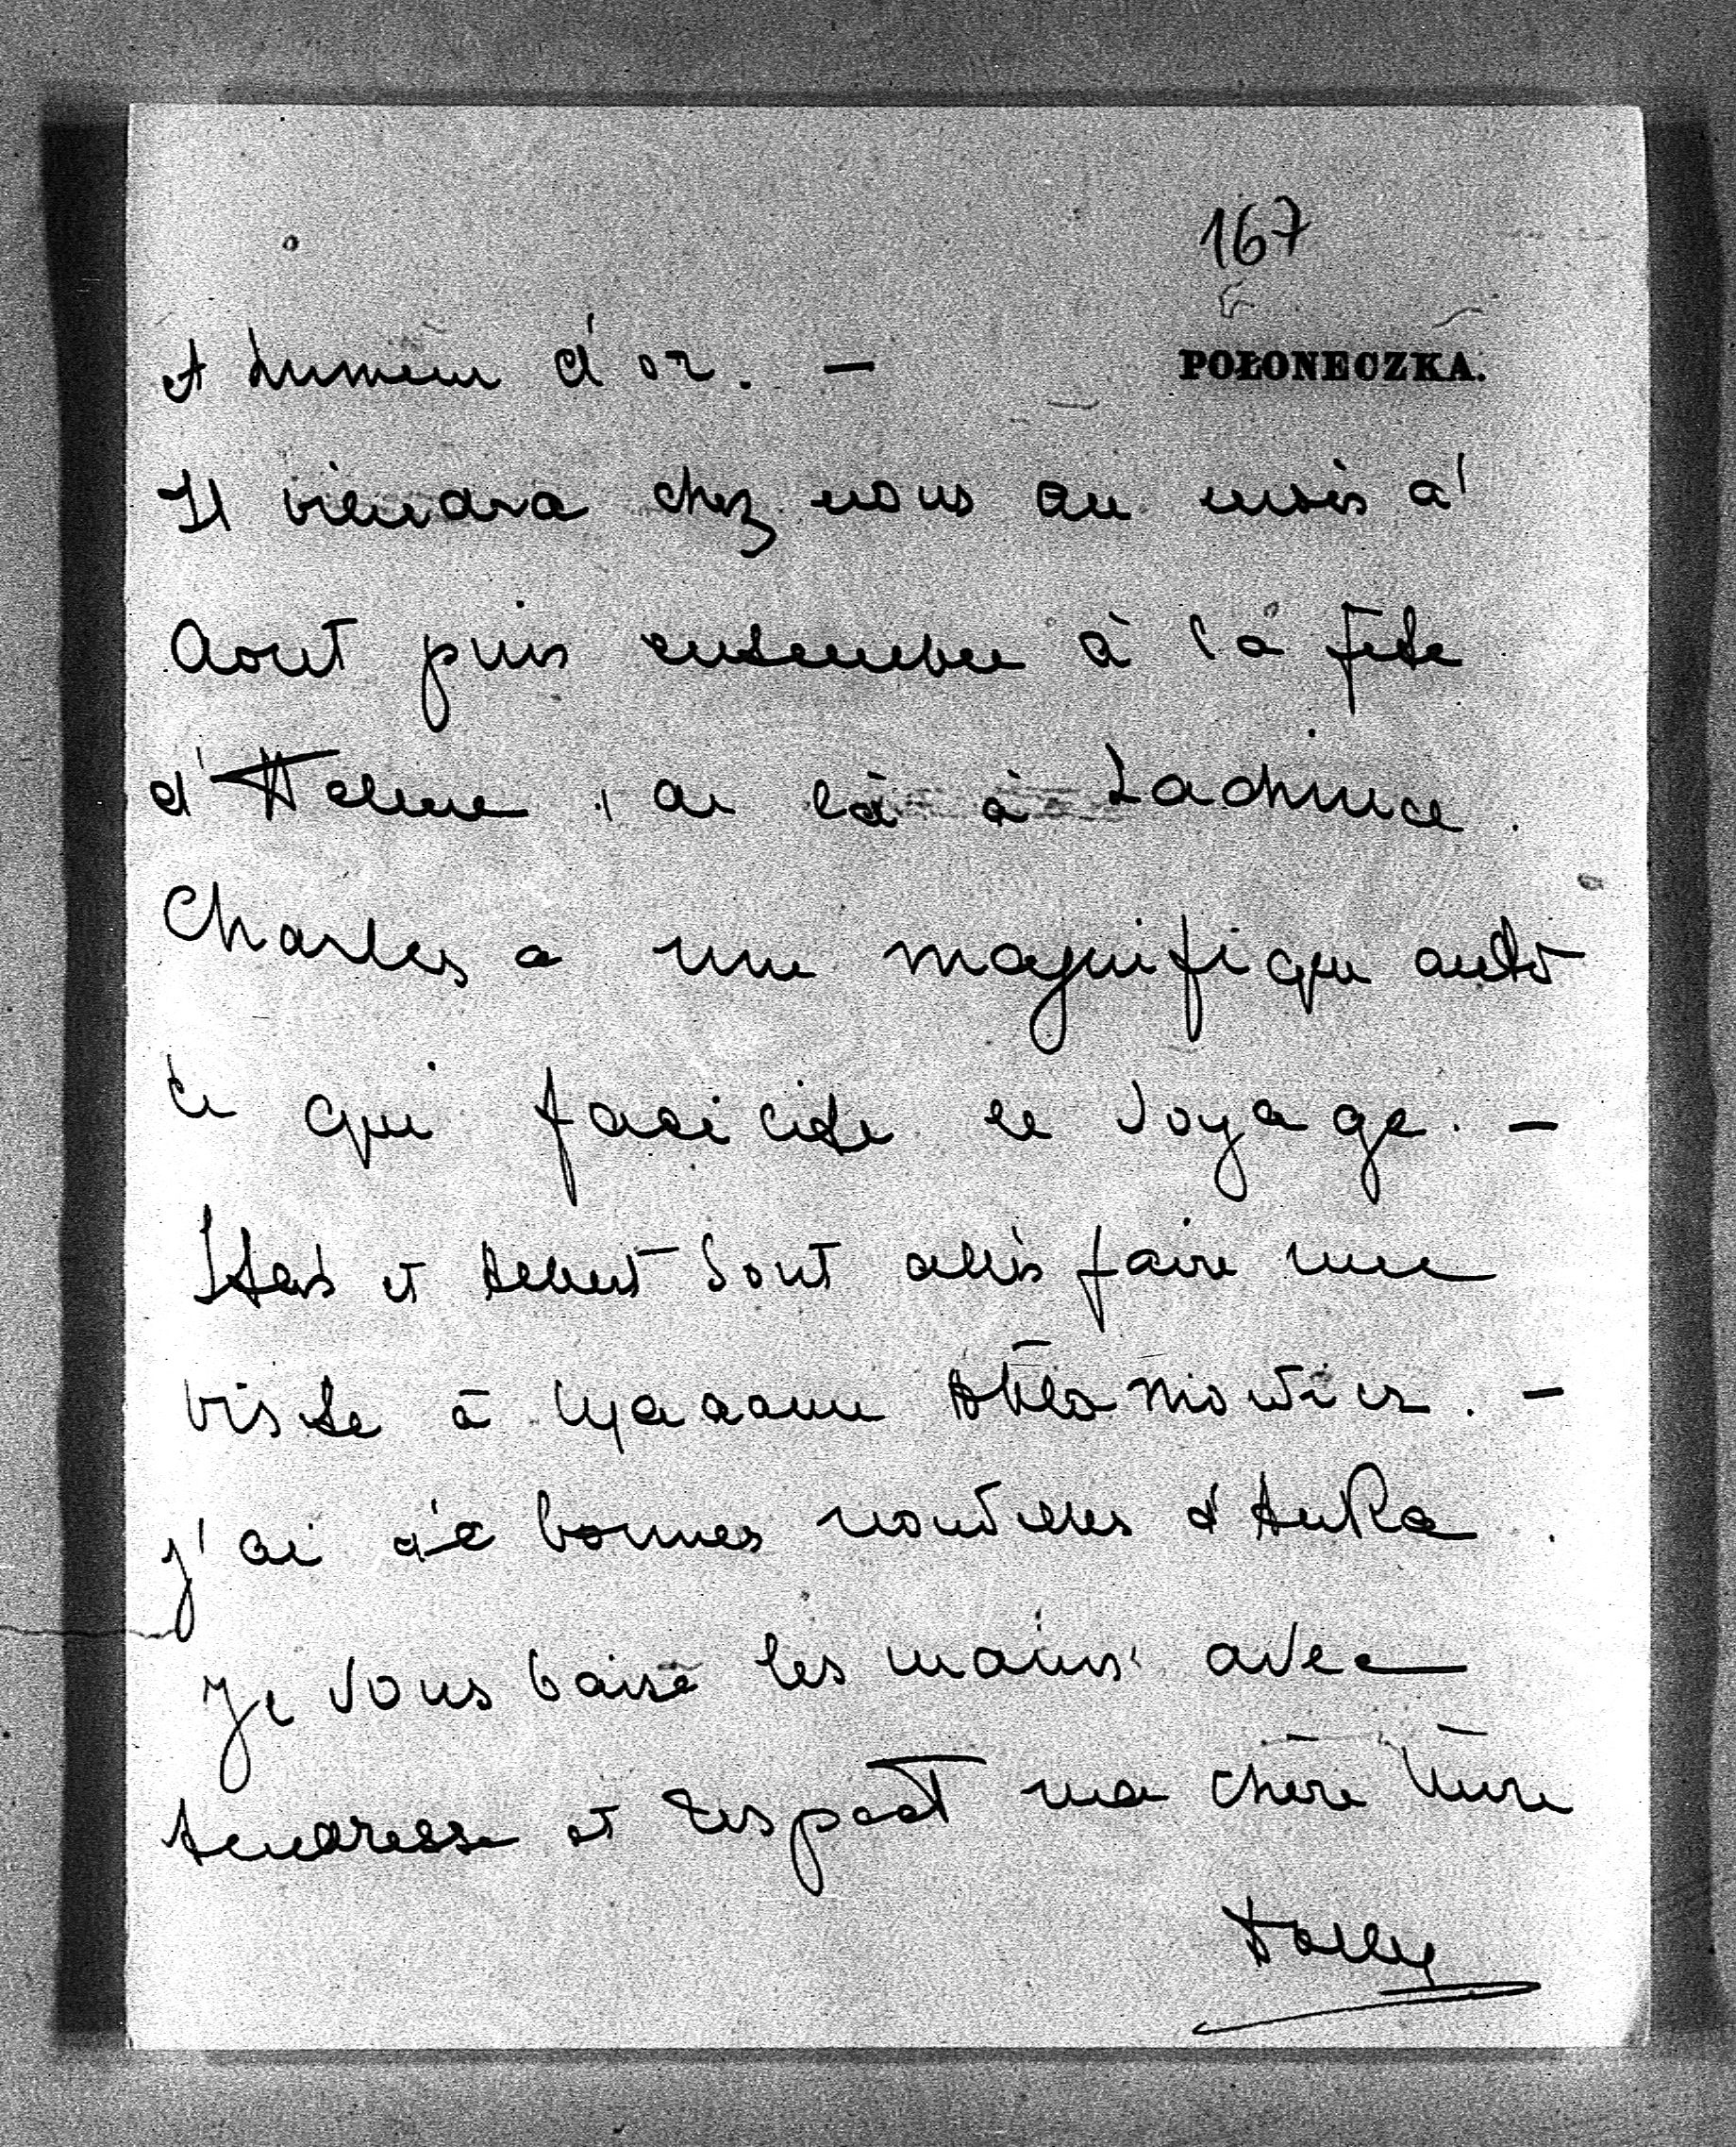 167
POŁONECZKA.
et d'or. —
Il viendra chez nous au mois d'
Aout puis ensemble à la fête
d'Helene, de là à
Charles a une magnifique auto
ce qui facilite le voyage. —
Stas et Albert sont allés faire une
visite à Madame
j'ai de bonnes nouvelles d'Anka.
Je vous baise les mains avec
tendresse et respect ma chère
Dolly